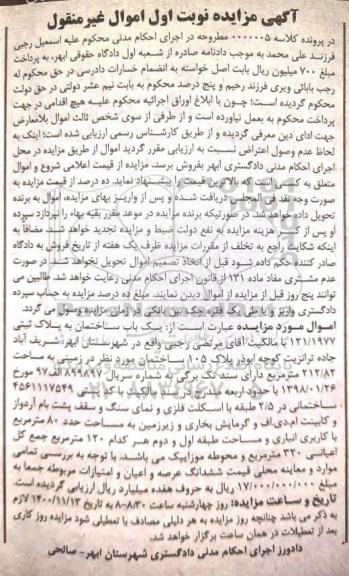 آگهی مزایده نوبت اول اموال غیرمنقول
در پرونده کلاسه ۰۰۰۰۰۰۵ مطروحه در اجرای احکام مدنی محکوم علیه اسمعیل رجبی
فرزند علی محمد به موجب دادنامه صادره از شعبه اول دادگاه حقوقی ابهر، به پرداخت
مبلغ ۷۰۰ میلیون ریال بابت اصل خواسته به انضمام خسارات دادرسی در حق محکوم له
رجب بابائی ویری فرزند رحیم و پنج درصد محکوم به بابت نیم عشر دولتی در حق دولت
محکوم گردیده است؛ چون با ابلاغ اوراق اجرائیه محکوم علیه هیچ اقدامی در جهت
پرداخت محکوم به بعمل نیاورده است و از طرفی از سوی شخص ثالث اموال بلامعارض
جهت ادای دین معرفی گردیده و از طریق کارشناس رسمی ارزیابی شده است؛ اینک به
لحاظ عدم وصول اعتراض نسبت به ارزیابی مقرر گردید اموال از طریق مزایده در محل
اجرای احکام مدنی دادگستری ابهر بفروش برسد. مزایده از قیمت اعلامی شروع و اموال
متعلق به کسی است که بالاترین قیمت را پیشنهاد نماید. ده درصد از قیمت مزایده به
صورت وجه نقد فی المجلس دریافت شده و پس از واریز بهای مزایده، اموال به برنده
تحویل داده خواهد شد. در صورتیکه برنده مزایده در موعد مقرر بقیه بهاء را نپردازد سپرده
او پس از کسر هزینه مزایده به نفع دولت ضبط و مزایده تجدید خواهد شد. مضافا به
اینکه شکایت راجع به تخلف از مقررات مزایده ظرف یک هفته از تاریخ فروش به دادگاه
صادر کننده حکم داده شود قبل از اتخاذ تصمیم اموال تحویل نخواهد شد. در صورت
عدم مشتری مفاد ماده ۱۳۱ از قانون اجرای احکام مدنی رعایت خواهد شد. طالبین می
توانند پنج روز قبل از مزایده از اموال دیدن نمایند. مبلغ ده درصد مزایده به حساب سپرده
دادگستری واریز و یا طی یک فقره چک بین بانکی در زمان مزایده وصول می گردد.
اموال مورد مزایده عبارت است از: یک باب ساختمان به پلاک ثبتی
۱۲۱/۱۹۷۷ با مالکیت آقای مرتضی رجبی واقع در شهرستان ابهر شریف آباد
جاده ترانزیت کوچه ابوذر پلاک ۱۰۵ ساختمان مورد نظر در زمینی به مساحت
۲۱۲/۸۲ مترمربع دارای سند تک برگی به شماره سریال ۸۹۹۸۹۷ الف ۹۷ مورخ
۱۳۹۸/۰۱/۲۶ با حدود اربعه مندرج در سند مالکیت با کد پستی ۴۵۶۱۱۱۷۵۴۹
ساختمانی در ۲/۵ طبقه با اسکلت فلزی و نمای سنگ و سقف پشت بام آردواز
و کابینت ام.دی.اف و گرمایش بخاری و زیرزمین به مساحت حدد ۸۰ مترمربع
با کاربری انباری و مساحت طبقه اول و دوم هر کدام ۱۲۰ مترمربع جمع کل
اعیانی ۳۲۰ مترمربع و محوطه موزاییک می باشد. با توجه به بررسی تمامی
موارد و معاینه محلی قیمت ششدانگ عرصه و اعیان و امتیازات مربوطه جمعا به
مبلغ ۱۷/۰۰۰/۰۰۰/۰۰۰ ریال به حروف هفده میلیارد ریال ارزیابی گردیده است.
تاریخ و ساعت مزایده: روز چهارشنبه ساعت ۸:۳۰-۸ به تاریخ ۱۴۰۰/۱۱/۱۳ لازم
به ذکر می باشد چنانچه روز مزایده به هر دلیلی مصادف با تعطیلی شود مزایده روز کاری
بعد از تعطیلات در همان ساعت برگزار خواهد شد.
دادورز اجرای احکام مدنی دادگستری شهرستان ابهر- صالحی